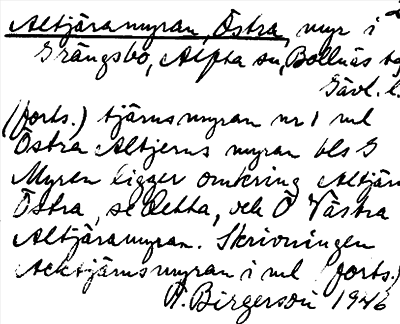 Altjäramyran, Östra, myr i
Grängsbo, Alfta sn, Bollnäs
Gävl. l.
(forts.) tjärnsmyran nr 1 ml
Östra Altjerns myran bls G
Myren ligger omkring Altjärn
Östra, se detta, och Ö Västra
Altjäramyran. Skrivningen
Acktjärnsmyran i ml (forts.)
Ö. Birgerson 1946